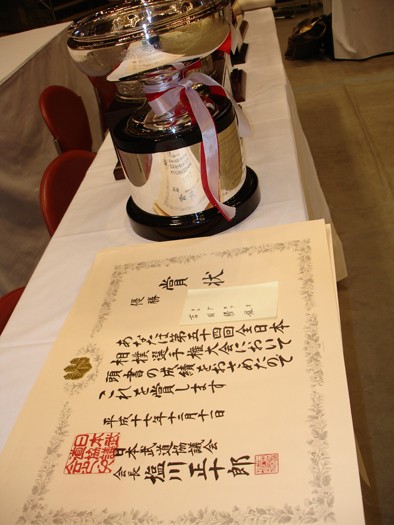 賞状
優勝
あなたは第五十四回全日本
相撲選手権大会において
頭書の成績をおさめたので
これを賞します
平成十七年十二月十一日
日本武道協議会
会長 塩川正十郎